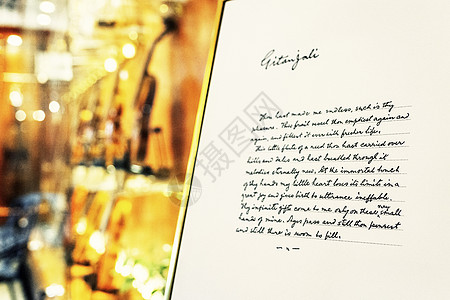 Gitanjali
Thou hast made me endless, such is thy
pleasure. This frail vessel thou emptiest again and
again, and fillest it ever with fresher life.
This little flute of a reed thou hast carried over
hills and dales and hast breathed through it
melodies eternally new. At the immortal touch
of thy hands my little heart loses its limits in a
great joy and gives birth to utterance ineffable.
Thy infinite gifts come to me only on these very small
hands of mine. Ages pass and still thou pourest
and still there is room to fill.